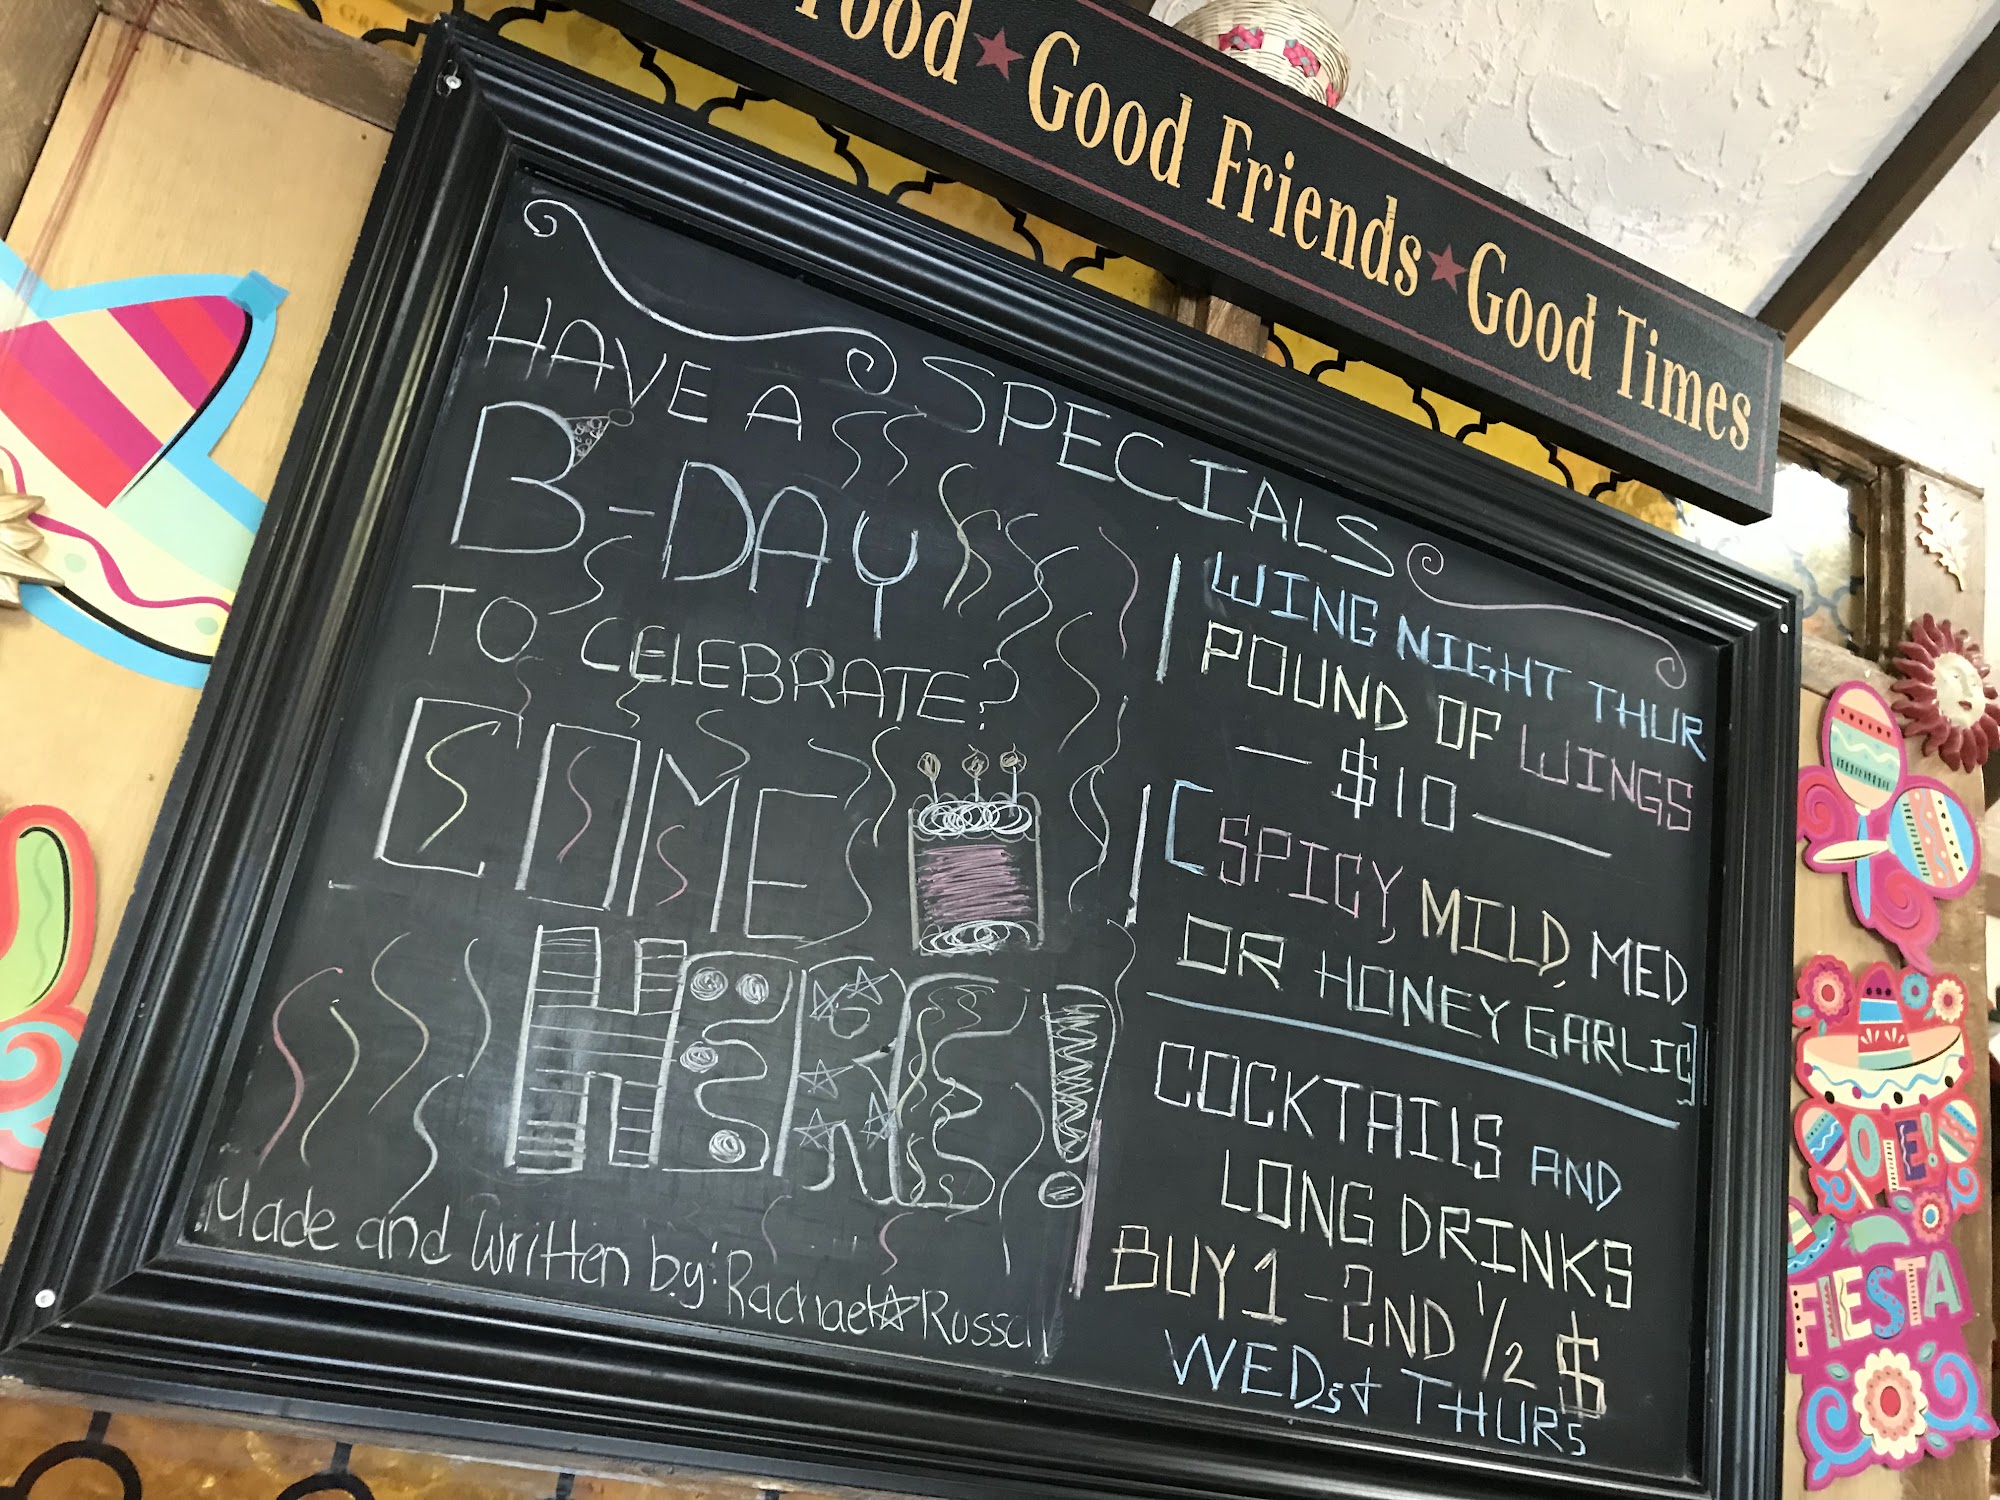 Food ★ Good Friends ★ Good Times
SPECIALS
HAVE A
B-DAY
TO CELEBRATE?
COME
HERE!
Made and Written by: Rachael ☆ Russell
WING NIGHT THUR
POUND OF WINGS
— $10 —
[SPICY, MILD, MED
OR HONEY GARLIC]
COCKTAILS AND
LONG DRINKS
BUY 1 - 2ND 1/2 $
WEDS + THURS
OLE!
FIESTA